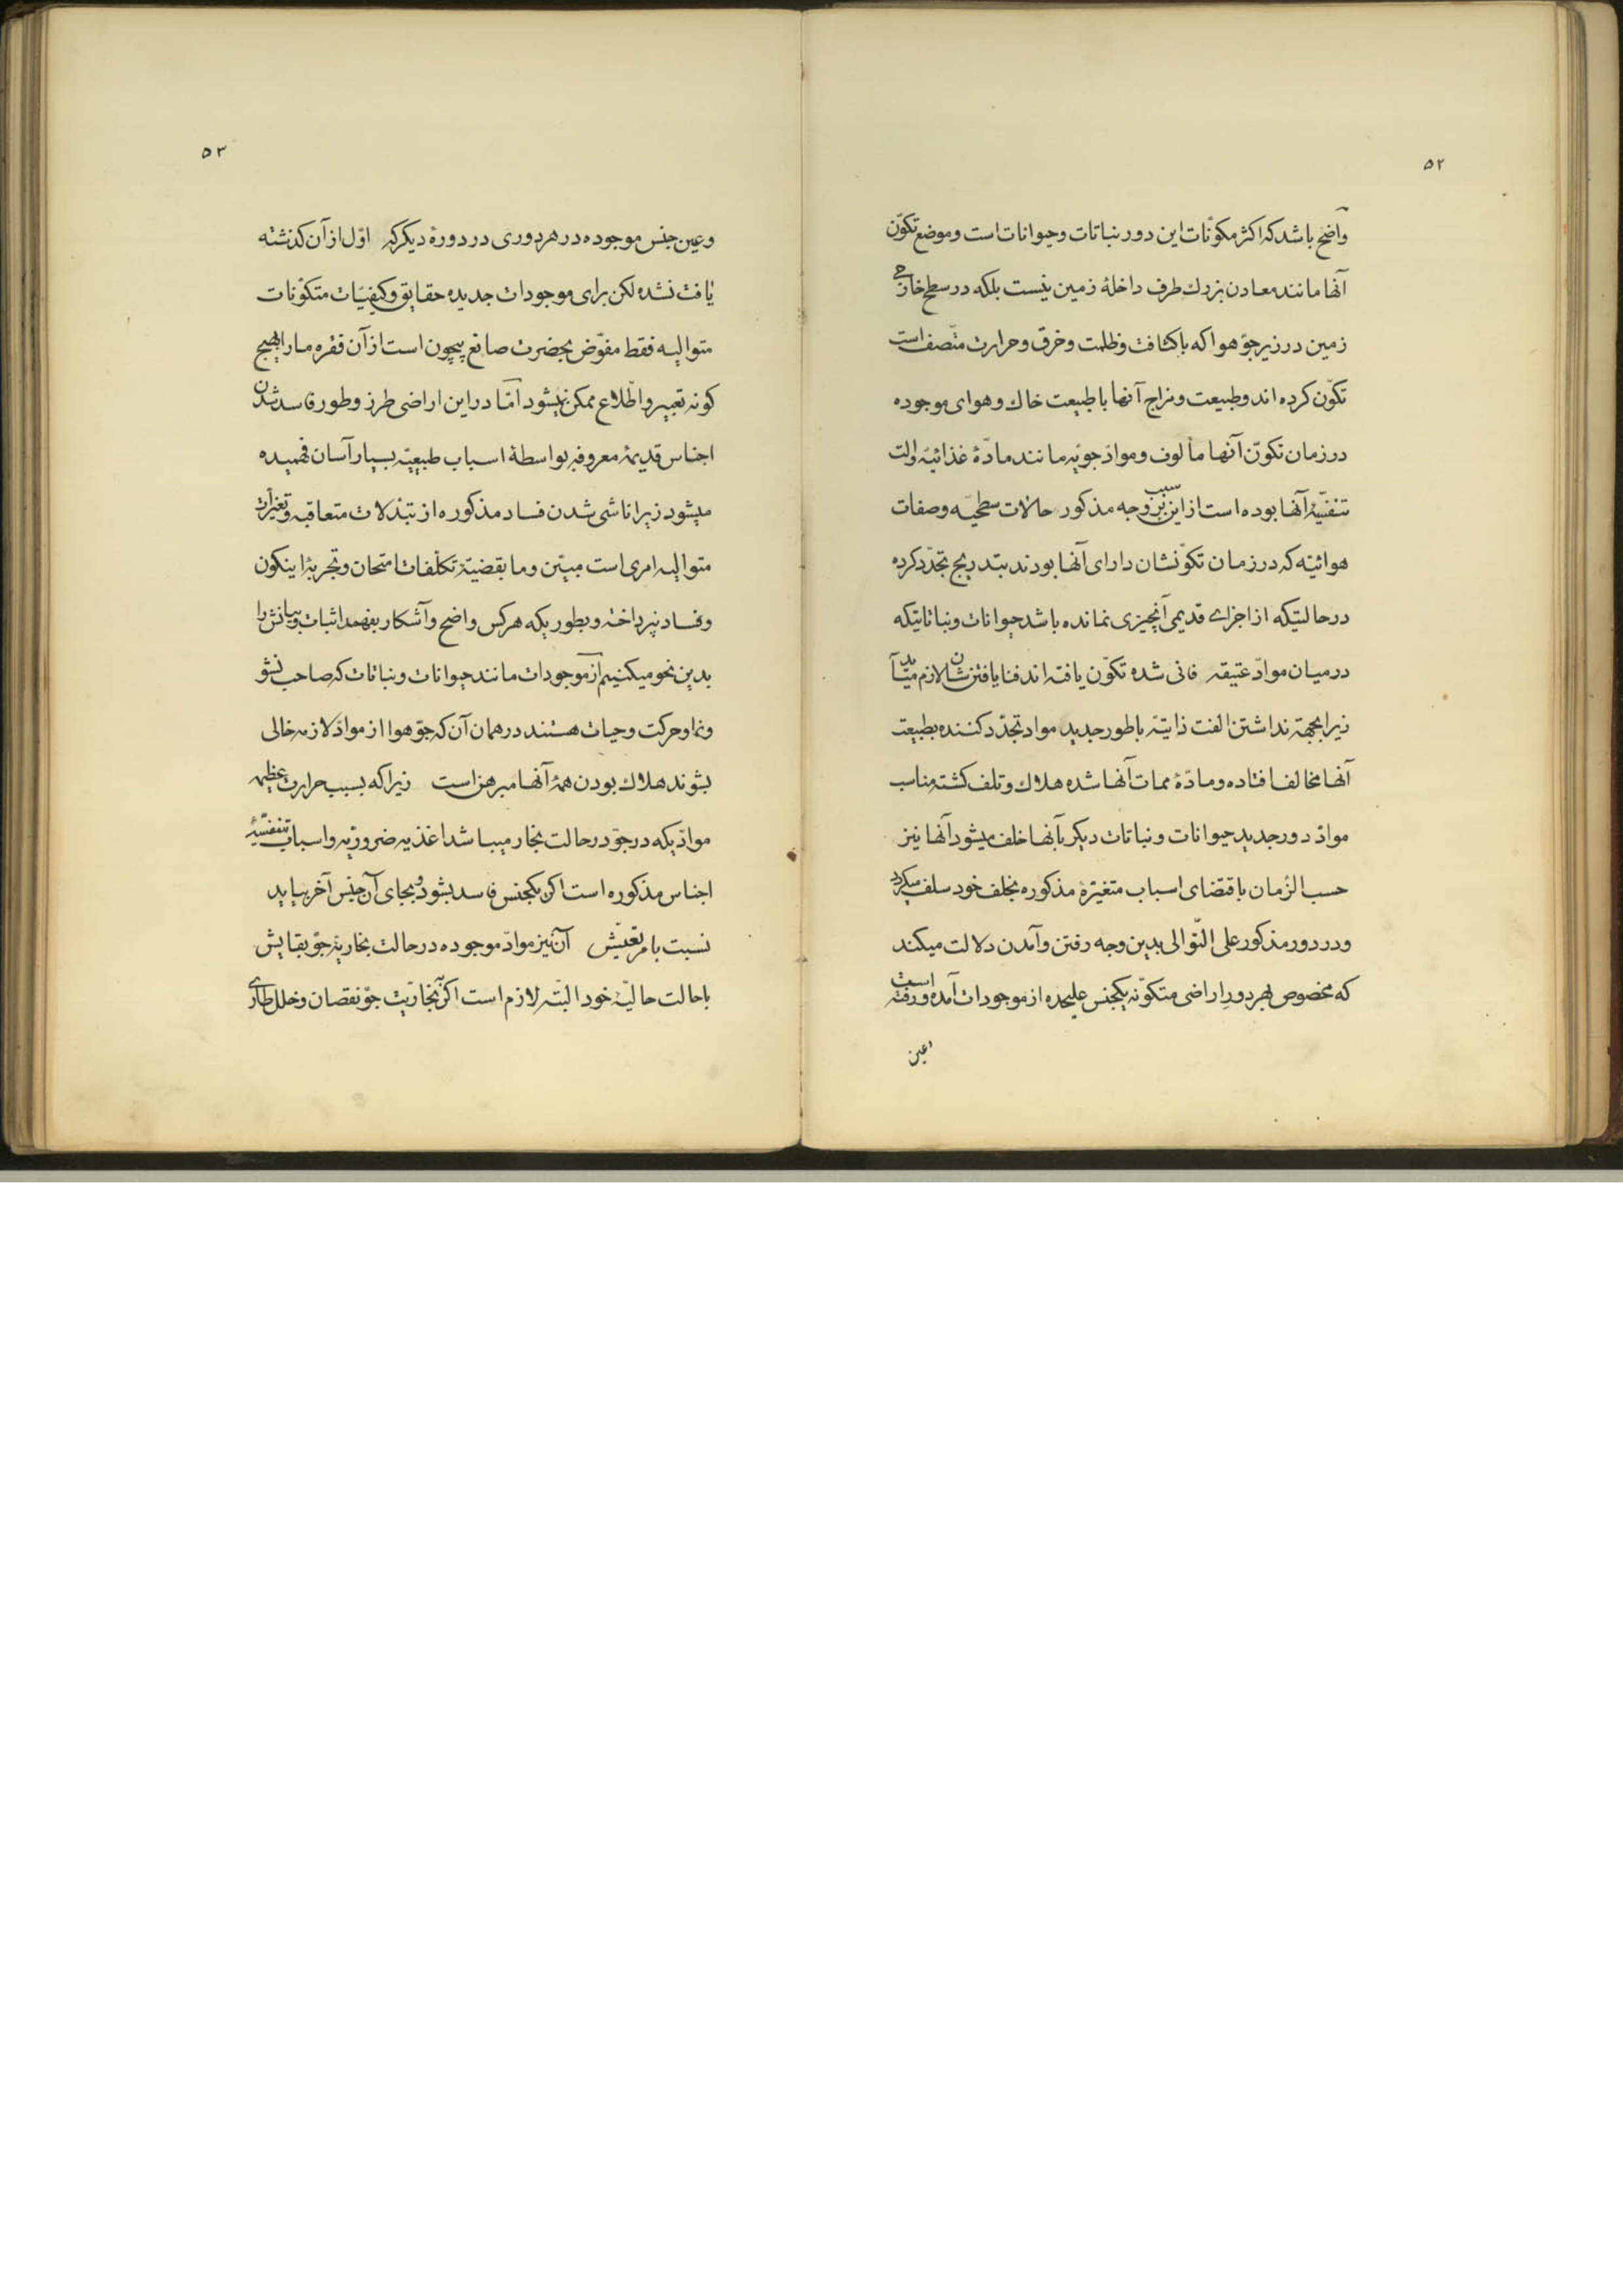 ۵۲
واضح باشد که اکثر مکوّنات این دور نباتات و حیوانات است و موضع تکوّن
آنها مانند معادن بزرك طرف داخلهٔ زمین نیست بلکه در سطح خارجی
زمین در زیر جوّ هوا که با کثافت و ظلمت و خرق و حرارت متّصف است
تکوّن کرده اند و طبیعت و مزاج آنها با طبیعت خاك و هوای موجوده
در زمان تکوّن آنها مألوف و موادّ جوّیه مانند مادّهٔ غذائیّه و الت
تنفّسیّهٔ آنها بوده است از این سبب وجه مذکور حالات سطحیّه و صفات
هوائیّه که در زمان تکوّنشان دارای آنها بودند بتدریج تجدّد کرده
در حالتیکه از اجزای قدیمی آنچیزی نمانده باشد حیوانات و نباتاتیکه
در میان موادّ عتیقه فانی شده تکوّن یافته اند فنا یافتنشان لازم میآید
زیرا بجهة نداشتن الفت ذاتیّه با طور جدید مواد تجدّد کننده بطبیعت
آنها مخالف افتاده و مادّهٔ ممات آنها شده هلاك و تلف کشته مناسب
موادّ دور جدید حیوانات و نباتات دیکر بآنها خلف میشود آنها نیز
حسب الزمان باقتضای اسباب متغیّرهٔ مذکوره بخلف خود سلف میکردد
و در دور مذکور علی التّوالی بدین وجه رفتن و آمدن دلالت میکند
که مخصوص بهر دورِ اراضی متکوّنه یکجنس علیحده از موجودات آمده و رفته است
وعین
۵۳
و عین جنس موجوده در هر دوری در دورهٔ دیکر که اوّل از آن کذشته
یافت نشده لکن برای موجودات جدیده حقایق و کیفیّات متکوّنات
متوالیه فقط مفوّض بحضرت صانع بیچون است از آن فقره ما را بهیچ
کونه تعبیر و اطّلاع ممکن نمیشود امّا در این اراضی طرز و طور فاسد شدن
اجناس قدیمهٔ معروفه بواسطهٔ اسباب طبیعیّه بسیار آسان فهمیده
میشود زیرا ناشی شدن فساد مذکوره از تبدّلات متعاقبه و تغیّرات
متوالیه امری است مبیّن و ما بقضیّهٔ تکلّفات امتحان و تجربهٔ اینکون
و فساد نپرداخته و بطوریکه هر کس واضح و آشکار بفهمد اثبات و بیانش را
بدین نحو میکنیم از موجودات مانند حیوانات و نباتات که صاحب نشو
و نما و حرکت و حیات هستند در همان آن که جوّ هوا از موادّ لازمه خالی
بشوند هلاك بودن همهٔ آنها مبرهن است زیرا که بسبب حرارت عظیمه
موادّیکه در جوّ در حالت بخار میباشد اغذیه ضروریّه و اسباب تنفسیّهٔ
اجناس مذکوره است اکر یکجنس فاسد بشود و بجای آن جنس آخر بیاید
نسبت بامر تعیّش آن نیز موادّ موجوده در حالت بخاریّهٔ جوّ بقایش
با حالت حالیّهٔ خود البتّه لازم است اکر بخاریّت جوّ نقصان و خلل طاری